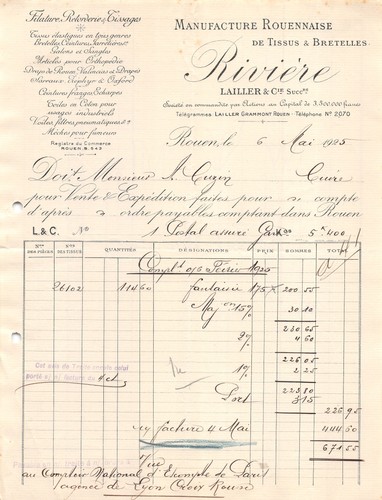 Filature, Retorderie & Tissages
Tissus élastiques en tous genres
Bretelles, Ceintures, Jarretières
Galons et Sangles
Articles pour Orthopédie
Draps de Rouen, Valencias et Drapés
Ceintures frangées, Echarpes
Toiles en Coton pour
usages industriels
Voiles, filtres, pneumatiques &ª
Mèches pour fumeurs
Registre du Commerce
ROUEN. B. 543
MANUFACTURE ROUENNAISE
DE TISSUS & BRETELLES
Rivière
LAILLER & Cie Succrs
Société en commandite par Actions au Capital de 3.300.000 francs
Télégrammes LAILLER GRAMMONT ROUEN - Téléphone Nº 2070
Rouen, le 6 Mai 1925
Doit Monsieur A. Cuzin Cuire
pour Vente & Expédition faites pour s/ compte
d'après s/ ordre payables comptant dans Rouen
L&C. Nº 1 Postal assuré Gr. Kos 5k400
Nos DES PIÈCES Nos DES TISSUS QUANTITÉS DÉSIGNATIONS PRIX SOMMES TOTAL
Compt. o/ 6 Février 1925
26102 114 60 fantaisie 175 200 55
Maj on 15% 30 10
230 65
2% 4 60
226 05
1% 2 25
223 80
Port 3 15
226 95
n/ facture 4 Mai 444 60
671 55
Vue
au Comptoir National d'Escompte de Paris
agence de Lyon Croix Rousse